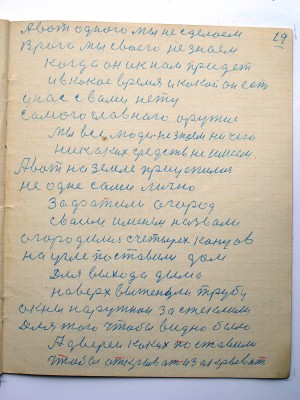 19
А вот одного мы не сделаем
Врага мы своего не знаем
Когда он ик нам придет
и в кокое время и кокой он ест
у нас с вами нету
самого главного оружие
Мы все люди не знаем ничего
никаких средств не имеем
А вот на земле приуспилися
не одне сами лично
Захватили огород
своим именем назвали
огородили с четырех концов
на угле поставили дом
Для выхода дыма
наверх вытенули трубу
окны наружной застеклили
Для того чтобы видно было
А дверей коких поставили
чтобы открыват и закрыват